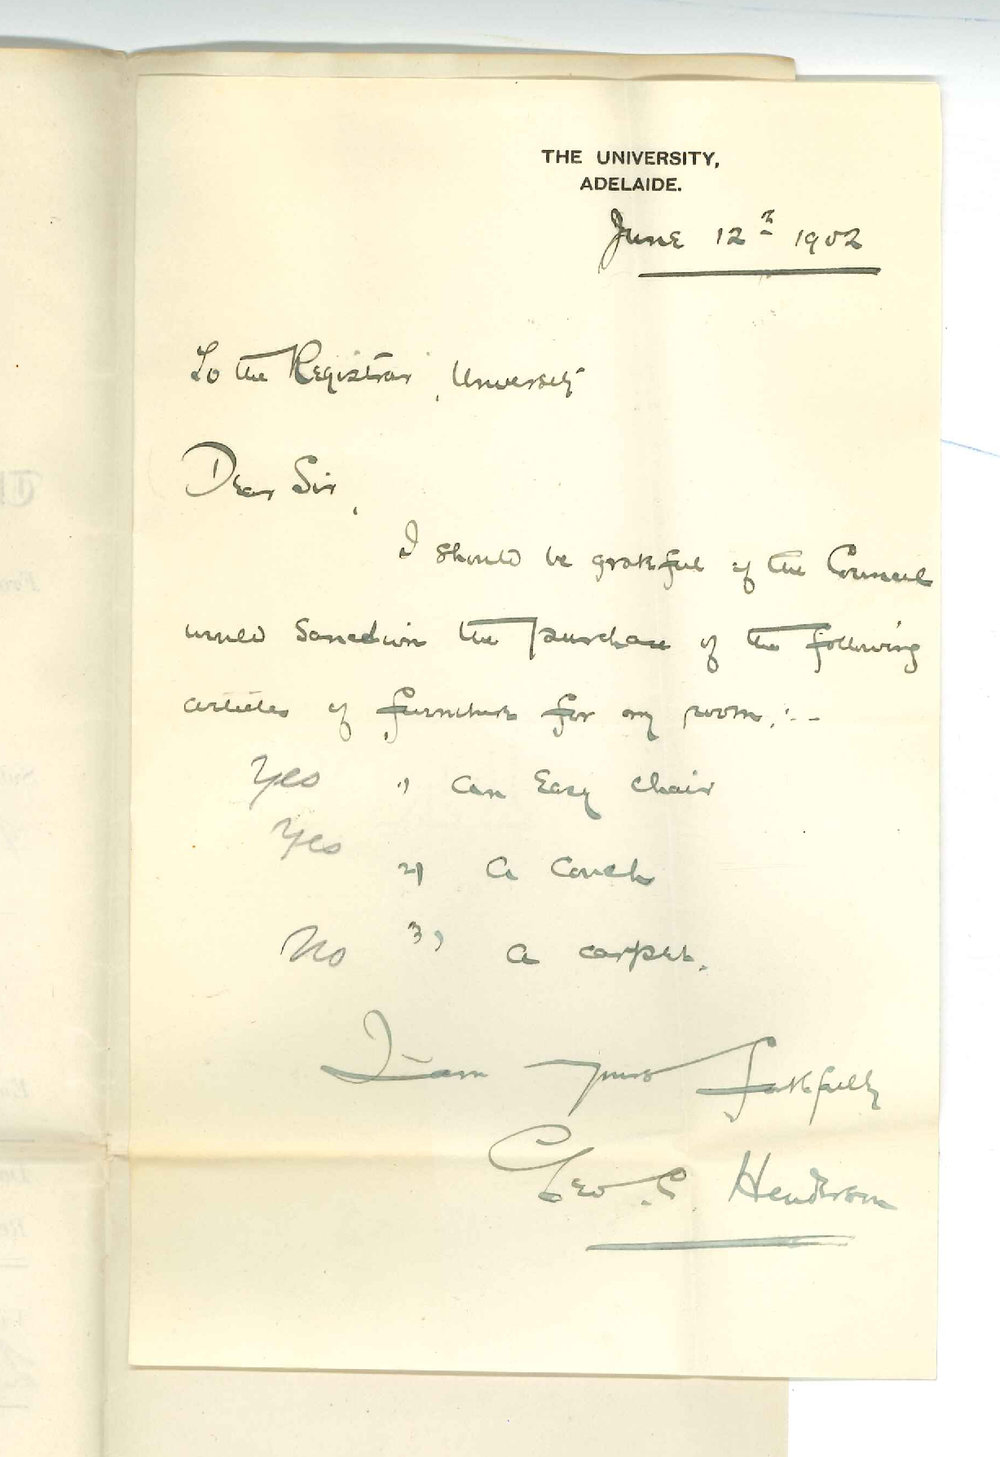 THE UNIVERSITY,
ADELAIDE.
June 12th 1902
To the Registrar, University
Dear Sir,
I should be grateful if the Council
would sanction the purchase of the following
articles of furniture for my room:-
Yes 1) an Easy chair
Yes 2) a couch
No 3) a carpet.
I am yours faithfully
Geo. C. Henderson